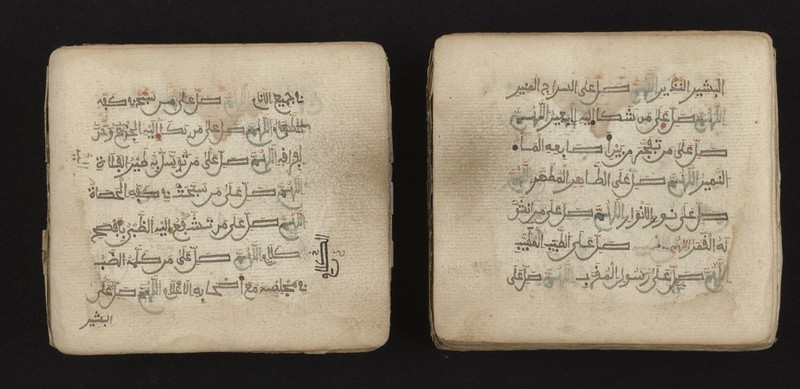 في جميع الانام اللهم صل على من سبح في كفه
الطعام اللهم صل على من بكا اليه الجذع وحن
لفراقه اللهم صل على من توسل به طير الفلاة
اللهم صل على من سبحت في كفه الحصاة
اللهم صل على من تشفع اليه الظبي بافصح
كلام اللهم صل على من كلمه الضب
في مجلسه مع اصحابه الاعلام اللهم صل على
البشير
البشير النذير اللهم صل على السراج المنير
اللهم صل على من شكا اليه البعير اللهم
صل على من تفجر من بين اصابعه الماء
النمير اللهم صل على الطاهر المطهر اللهم
صل على نور الانوار اللهم صل على من انشق
له القمر اللهم صل على الطيب المطيب
اللهم صل على الرسول المقرب اللهم صل على